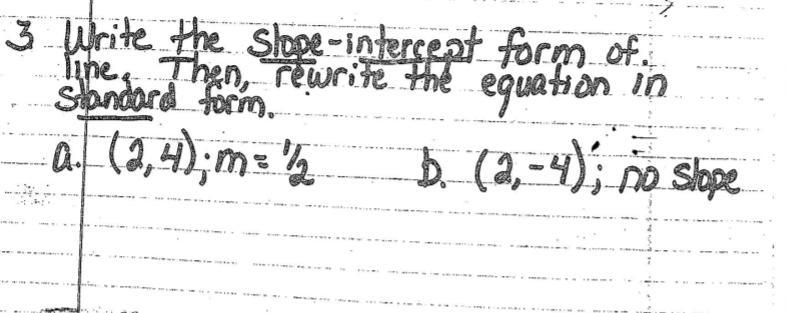 3 Write the slope-intercept form of.
line. Then, rewrite the equation in
standard form.
a. (2,4); m = 1/2 b. (2,-4); no slope